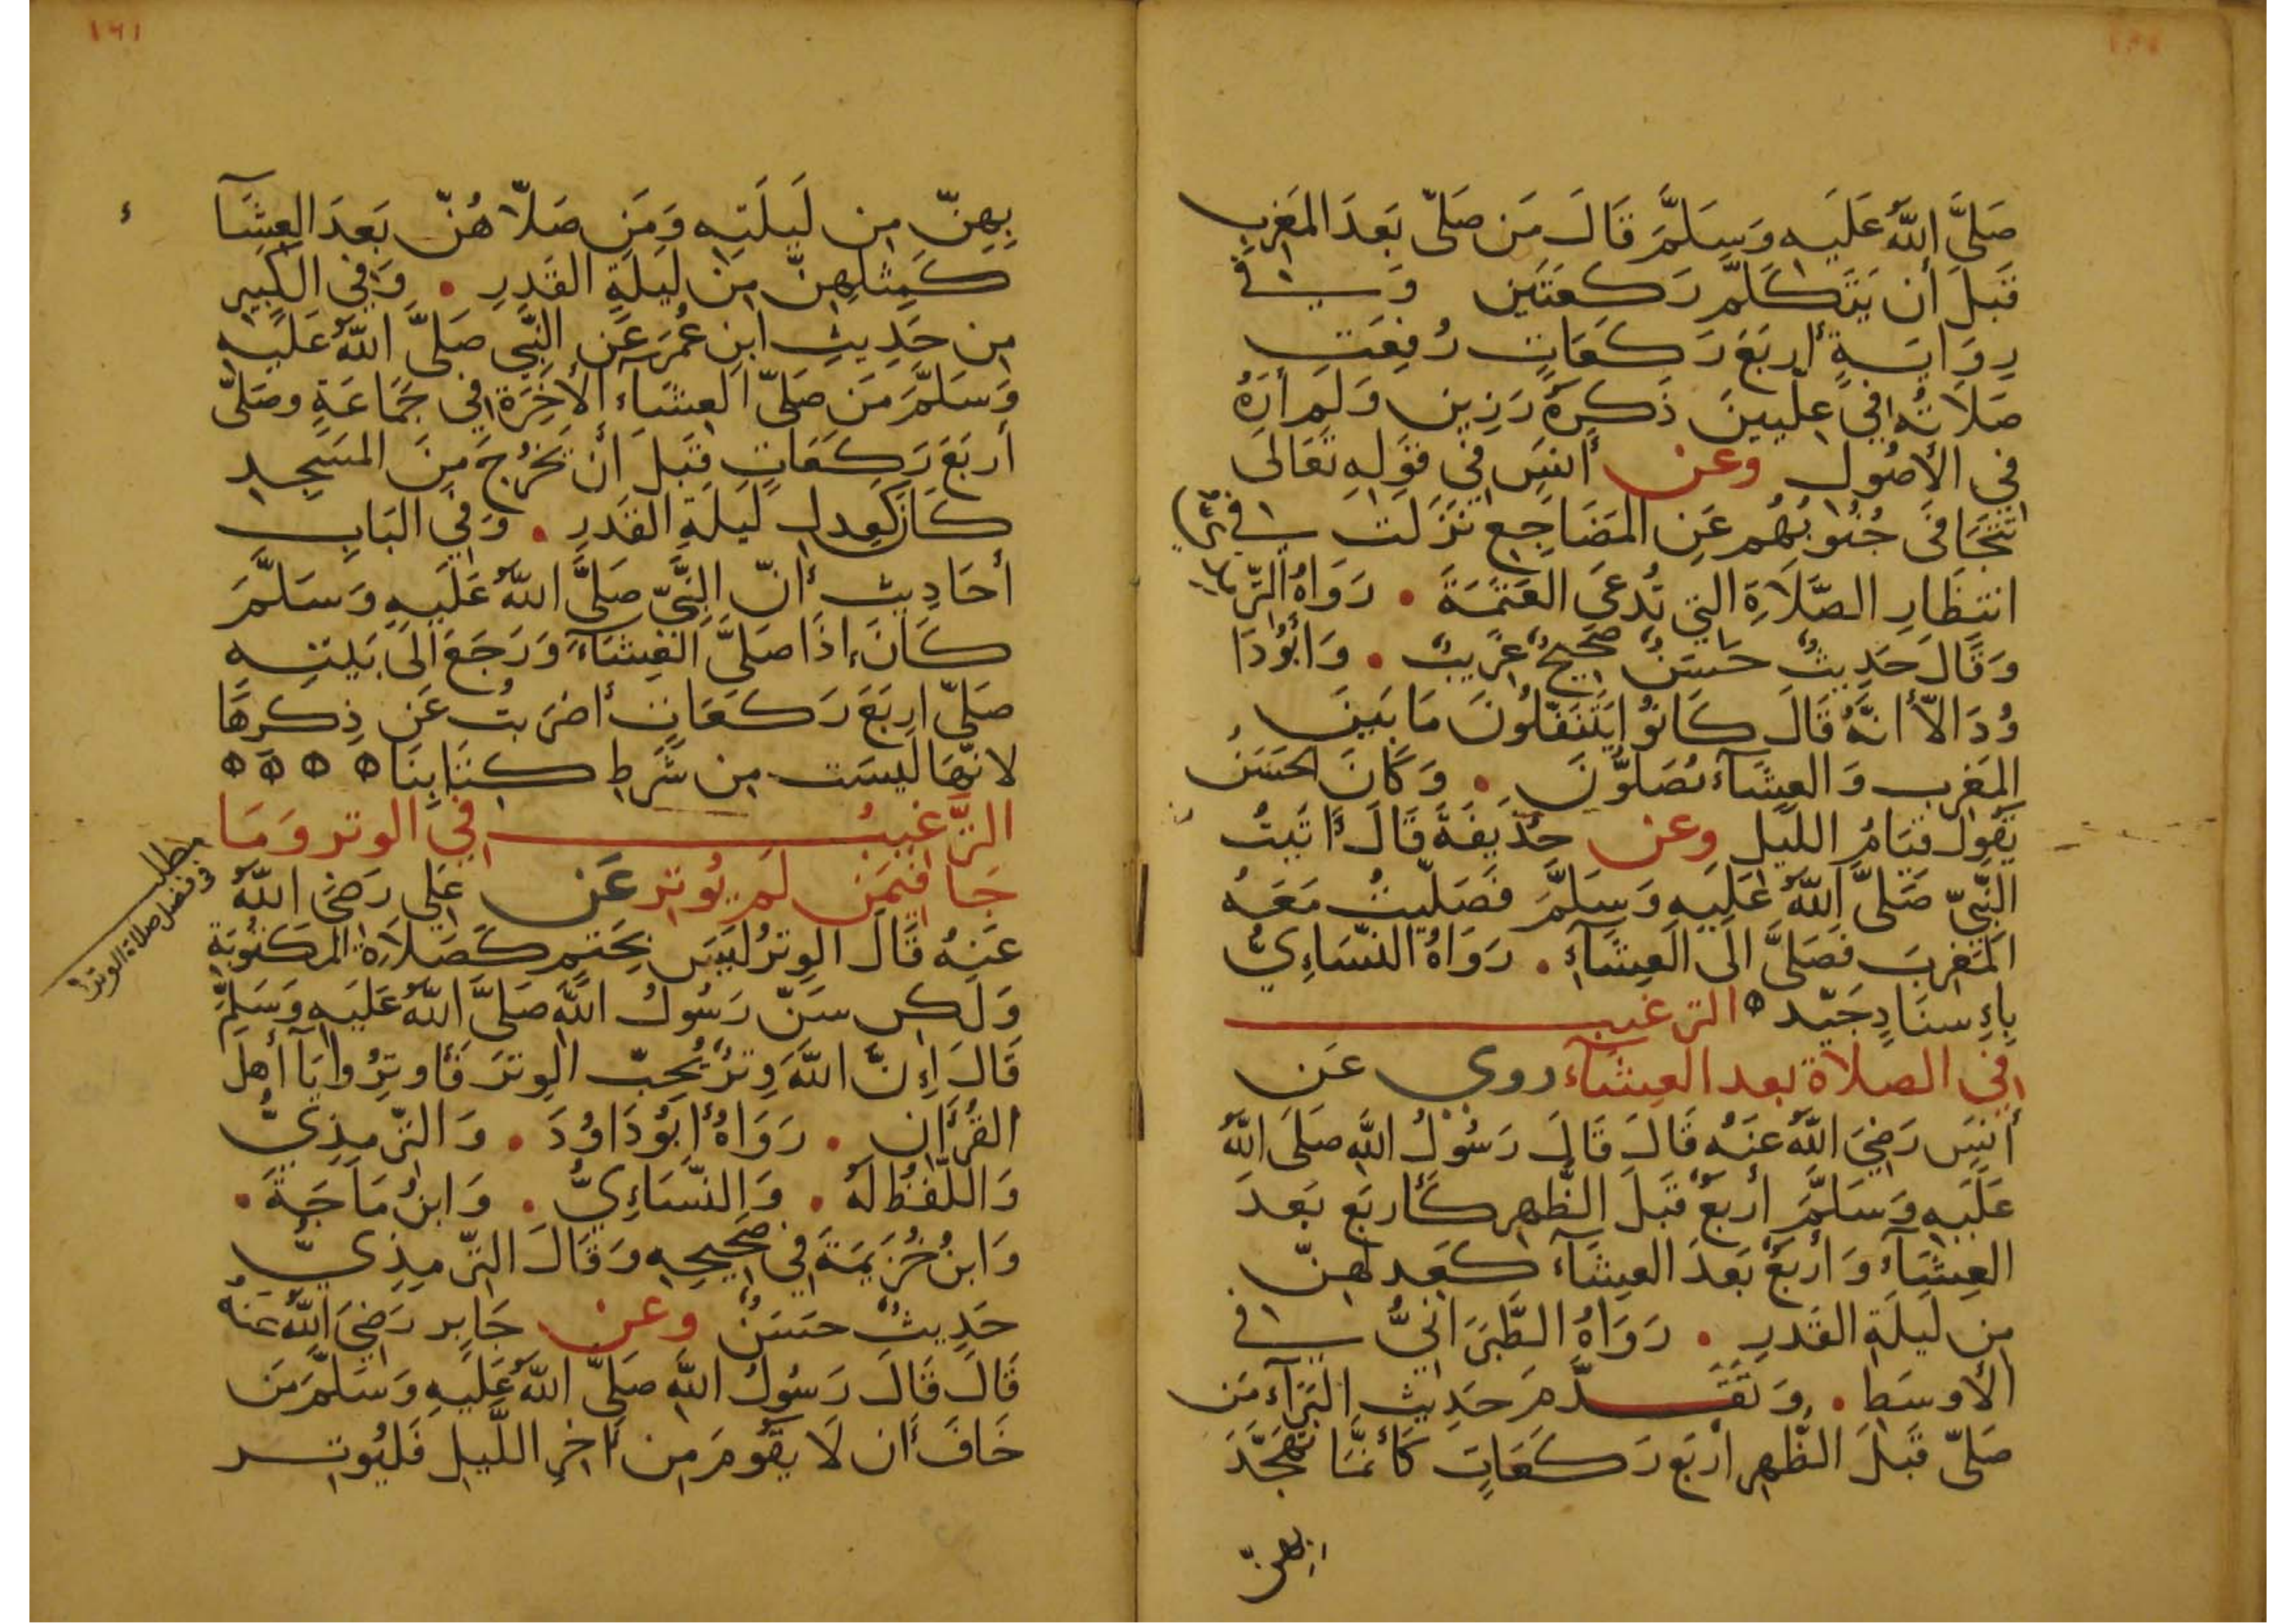 صَلَّى اللَّهُ عَلَيهِ وَسَلَّمَ قَالَ مَن صَلّى بَعدَ المَغرِبِ
قَبلَ أن يَتَكَلَّمَ رَكعَتَين وَفي
رِوَايَةٍ أربَعَ رَكعَاتٍ رُفِعَت
صَلَاتُه في عِلّيينَ ذَكرَهُ رَزِين وَلَم أرَهُ
في الأصُول وعن أنسٍ في قَولِهِ تَعَالَى
تَتَجَافَى جُنُوبُهُم عَنِ المَضَاجِع نَزَلَت في
انتِظَارِ الصَّلَاةِ التي تُدعَى العَتَمَةَ . رَوَاهُ الترمذي
وَقَالَ حَدِيثٌ حَسَنٌ صَحِيحٌ غَرِيبٌ . وَأبُو دَا
وُدَ الاّ أنَّهُ قَالَ كَانُوا يَتَنَفَّلُونَ مَا بَينَ
المَغرِبِ وَالعِشَآء يُصَلّونَ . وَكَانَ الحَسَنُ
يَقُول قيَامُ اللَّيل وعن حُذَيفَةَ قَالَ أتَيتُ
النَّبِيّ صَلَّى اللَّهُ عَلَيهِ وَسَلَّمَ فَصَلّيتُ مَعَهُ
المَغرِبَ فَصَلَّى الَى العِشَآءِ . رَوَاهُ النّسَاءِيُّ
بِاءِسنَادٍ جَيّد الترغيب
في الصلاة بعد العِشَآء روي عَن
أنسٍ رَضِيَ اللَّهُ عَنهُ قَالَ قَالَ رَسُولُ اللَّهِ صَلَى اللَّهُ
عَلَيهِ وَسَلَّمَ أربَعٌ قَبلَ الظُّهر كَأربَع بَعدَ
العِشَآءُ وَأربَعٌ بَعدَ العِشَآء كَعِدلهِنّ
مِن لَيلَةِ القَدرِ . رَوَاهُ الطَّبَرَانيُّ في
الأوسَطِ . وَتَقَدَّمَ حَدِيث البَرَآء مَن
صَلّى قَبلَ الظُّهرِ أربَع رَكَعَاتٍ كَأنّمَا تَهَجَّدَ
بهنّ
١٦١
بِهِنّ مِن لَيلَتِهِ وَمَن صَلّاهُنّ بَعدَ العِشَآ
كَمِثلِهِنّ مِن لَيلَةِ القَدرِ . وَفي الكَبِير
مِن حَدِيثِ ابنِ عُمَرَ عَنِ النَّبي صَلَّى اللَّهُ عَلَيهِ
وَسَلَّمَ مَن صَلّى العِشَآء الأخِرَة في جَمَاعَةٍ وصَلّى
أربَعَ رَكَعَاتٍ قَبلَ أن يَخرُجَ مِنَ المَسجِدِ
كَانَ كَعِدلِ لَيلَةِ القَدرِ . وَفي البَابِ
أحَادِيث أنّ النَّبِيّ صَلَّى اللَّهُ عَلَيهِ وَسَلَّمَ
كَانَ اذَا صَلَّى العِشَآءَ وَرَجَعَ الَى بَيتِهِ
صَلّى اربَعَ رَكعَاتٍ أضرَبتُ عَن ذِكرِهَا
لانّهَا لَيسَت مِن شَرطِ كِتَابِنَا
التَّرغيبُ في الوتر وَمَا
جَا فيمَن لَم يُوتِر عَن عَلي رَضيَ اللَّهُ
عَنهُ قَالَ الوِترُ لَيسَ بحَتمٍ كَصَلَاةِ المَكتُوبَةِ
وَلَكِن سَنّ رَسُولُ اللَّهِ صَلَّى اللَّهُ عَلَيهِ وَسَلَّمَ
قَالَ إِنَّ اللَّهَ وِترٌ يُحِبّ الوِترَ فَأوتِرُوا يَآ أهلَ
القُرآن . رَوَاهُ أبُو دَاوُدَ . وَالتّرمِذِيُّ
وَاللّفظُ لَهُ . وَالنّسَاءِيُّ . وَابنُ مَاجَةَ .
وَابنُ خُزَيمَةَ في صَحِيحِهِ وَقَالَ التّرمِذِيُّ
حَدِيثٌ حَسَنٌ وعن جَابِر رَضِيَ اللَّهُ عَنهُ
قَالَ قَالَ رَسُولُ اللَّهِ صَلَّى اللَّهُ عَلَيهِ وَسَلَّمَ مَن
خَافَ أن لَا يَقُومَ مِن أخِرِ اللَّيلِ فَليُوتِر
مطلب
في فضل صلاة الوتر